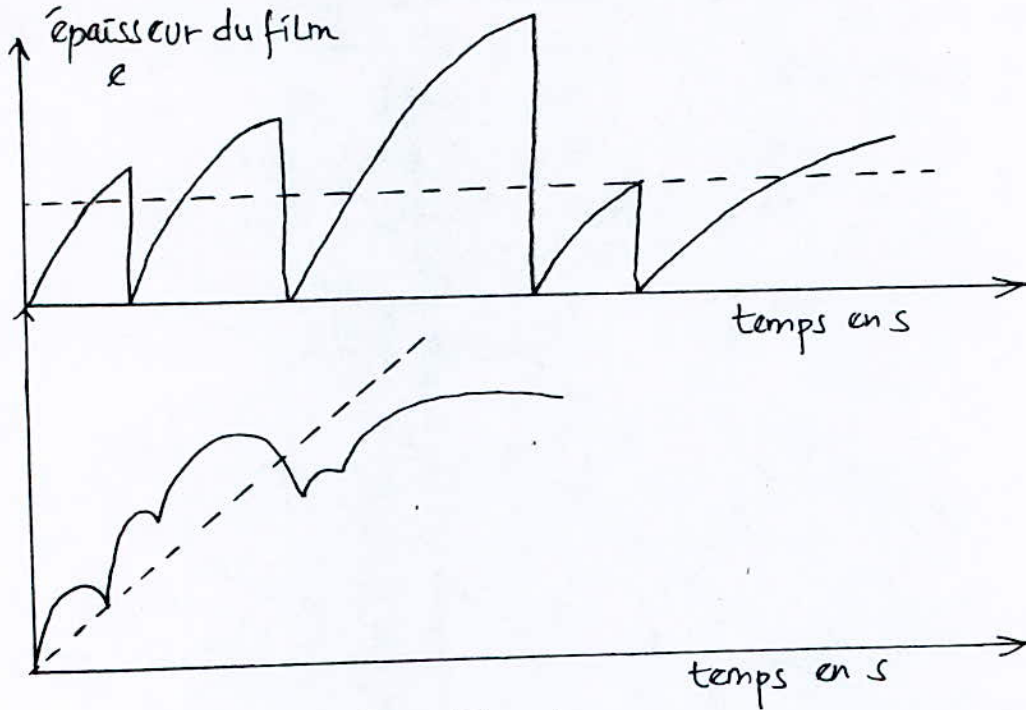 épaisseur du film
e
temps en s
temps en s